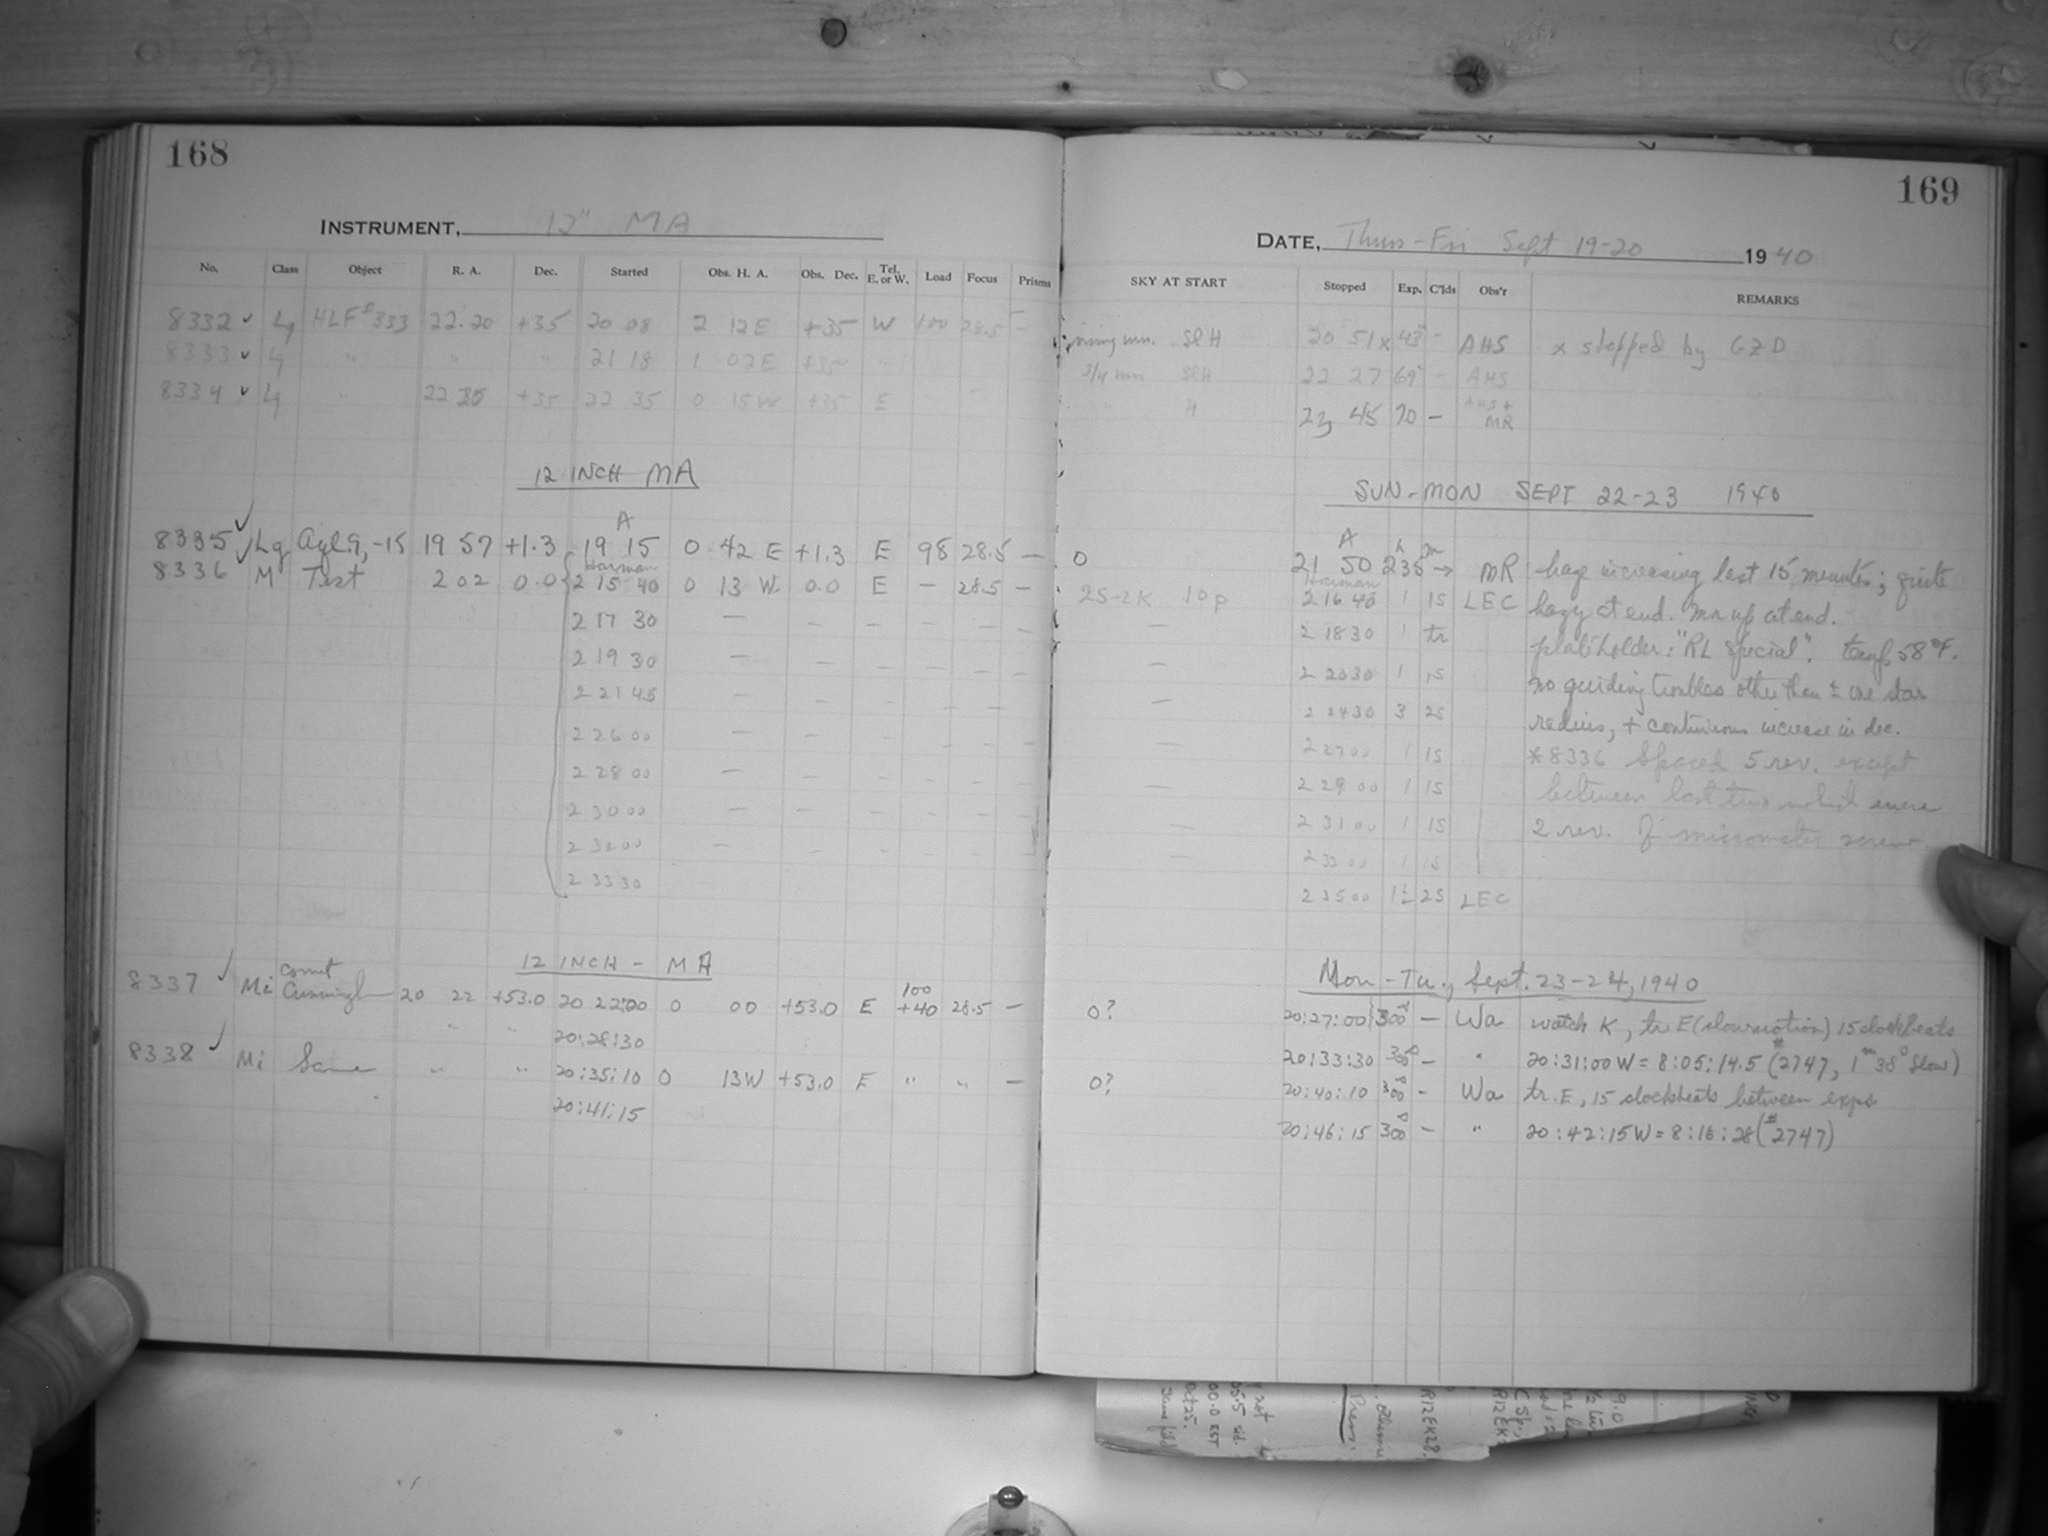 168
INSTRUMENT, 12" MA
No. Class Object R. A. Dec. Started Obs. H. A. Obs. Dec. Tel. E. or W. Load Focus Prisms
8332 ✓ Lg HLF #333 22.20 +35 20 08 2 12E +35 W 100 28.5 -
8333 ✓ Lg " " " 21 18 1 02E +35 "
8334 ✓ Lg " 22 35 +35 22 35 0 15W +35 E
12 INCH MA
A
8335 ✓ Lg Aql.9, -15 19 57 +1.3 19 15 0 42 E +1.3 E 98 28.5 —
Harman
8336 ✓ M Test 2 02 0.0 2 15 40 0 13 W 0.0 E — 28.5 —
2 17 30 — — — — — —
2 19 30 — — — — — —
2 21 45 — — — — — —
2 26 00 — — — — — —
2 28 00 — — — — — —
2 30 00 — — — — — —
2 32 00 — — — — — —
2 33 30
12 INCH - MA
8337 ✓ Mi Comet Cunningham 20 22 +53.0 20 22:00 0 00 +53.0 E 100 +40 28.5 —
" " 20:28:30
8338 ✓ Mi Same " " 20:35:10 0 13W +53.0 E " " —
20:41:15
169
DATE, Thurs-Fri Sept 19-20 1940
SKY AT START Stopped Exp. C'lds Obs'r REMARKS
rising mn. SlH 20 51 x 43 - AHS x stopped by GZD
3/4 mn SlH 22 27 69 - AHS
" H 23 45 70 — AHS + MR
SUN-MON SEPT 22-23 1940
A h m
0 21 50 2 35 → MR haze increasing last 15 minutes; quite
Harman
2S-2K 10p 2 16 40 1 1S LEC hazy at end. Mn up at end.
— 2 18 30 1 tr plateholder: "RL Special". temp 58°F.
— 2 20 30 1 1S no guiding troubles other than ± one star
— 2 24 30 3 2S radius, + continuous increase in dec.
— 2 27 00 1 1S *8336 Spaced 5 rev. except
— 2 29 00 1 1S between last two which were
— 2 31 00 1 1S 2 rev. of micrometer screw
— 2 33 00 1 1S
2 35 00 1½ 2S LEC
Mon-Tu., Sept. 23-24, 1940
0? 20:27:00 300s — Wa watch K, tr. E (slow motion) 15 clockbeats
20:33:30 300s — " 20:31:00 W = 8:05:14.5 (#2747, 1m 38s slow)
0? 20:40:10 300s - Wa tr. E, 15 clockbeats between exps
20:46:15 300s — " 20:42:15 W = 8:16:28 (#2747)